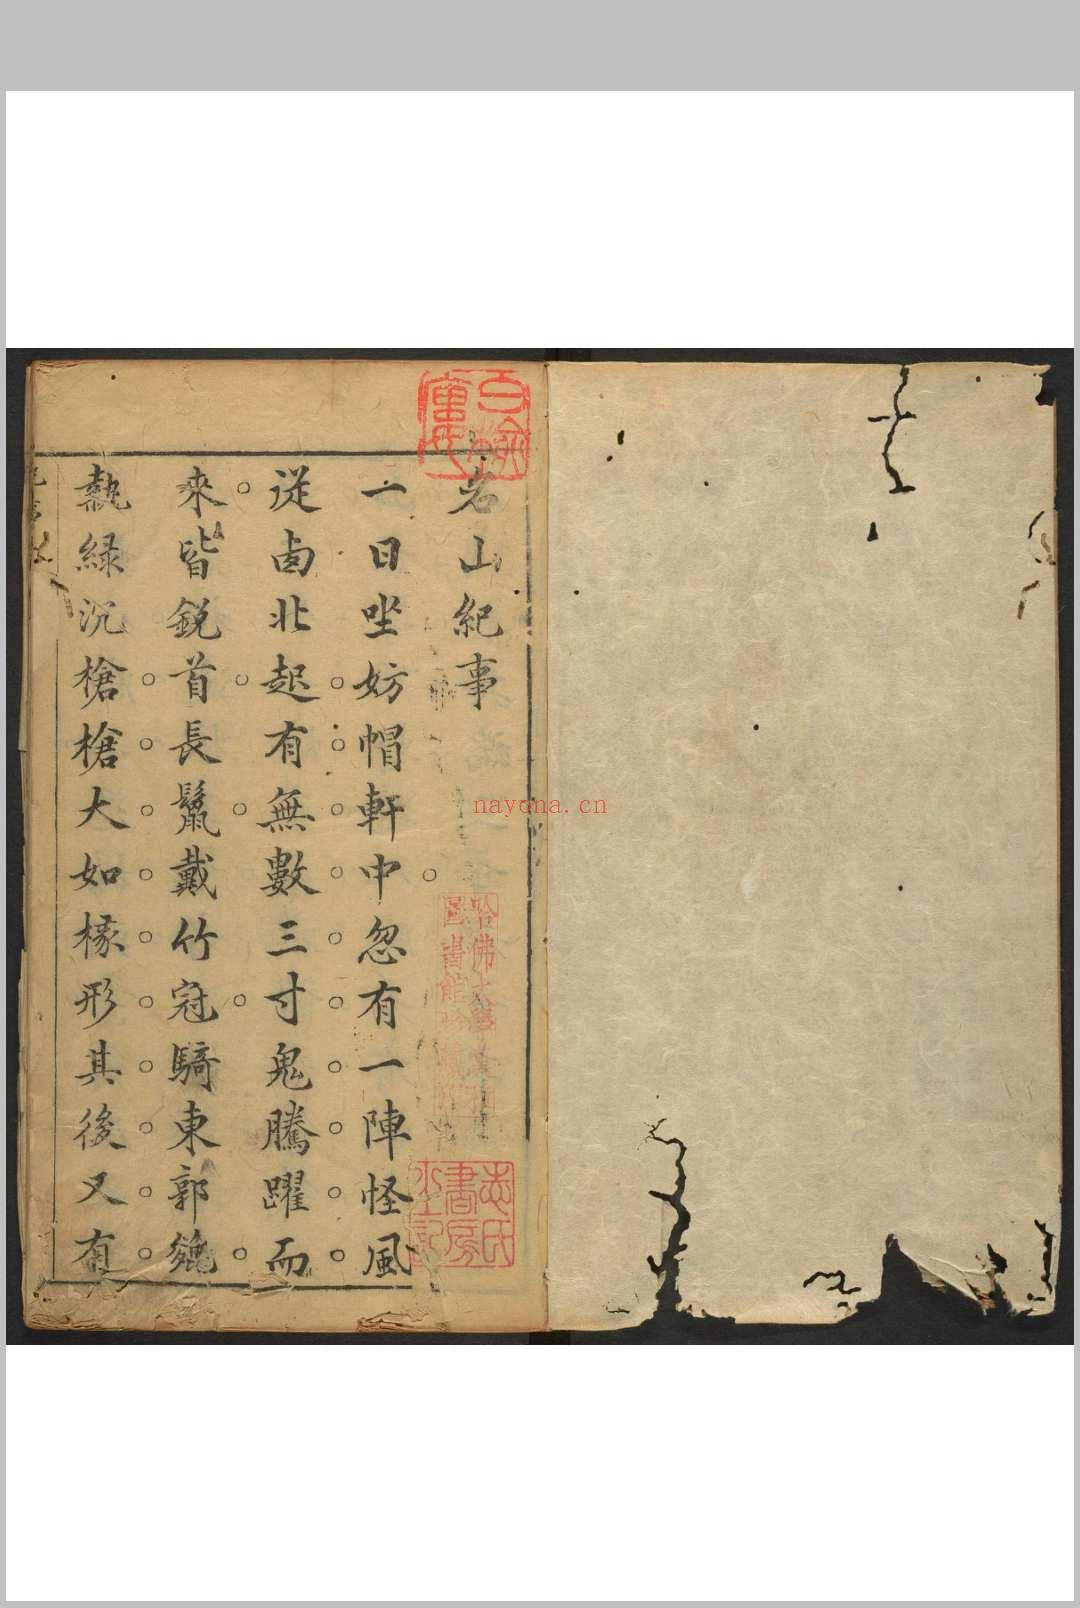 名山紀事
一日坐妨帽軒中忽有一陣怪風
從卤北起有無數三寸鬼騰躍而
來皆銳首長鬣戴竹冠騎東郭㕙
執綠沉槍槍大如椽形其後又有
哈佛大學
圖書館珍藏印
志氏
書房
nayona.cn